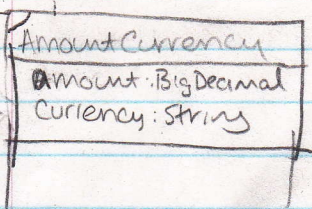 AmountCurrency
amount: BigDecimal
Currency: String